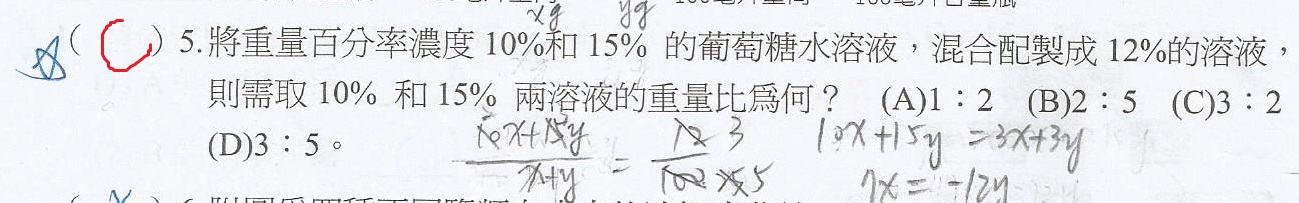 xg yg
( C ) 5.將重量百分率濃度 10%和 15% 的葡萄糖水溶液，混合配製成 12%的溶液，
則需取 10% 和 15% 兩溶液的重量比爲何？ (A)1：2 (B)2：5 (C)3：2
(D)3：5。
10x+15y / x+y = 12 / 100 3 5 10x+15y =3x+3y
7x = -12y